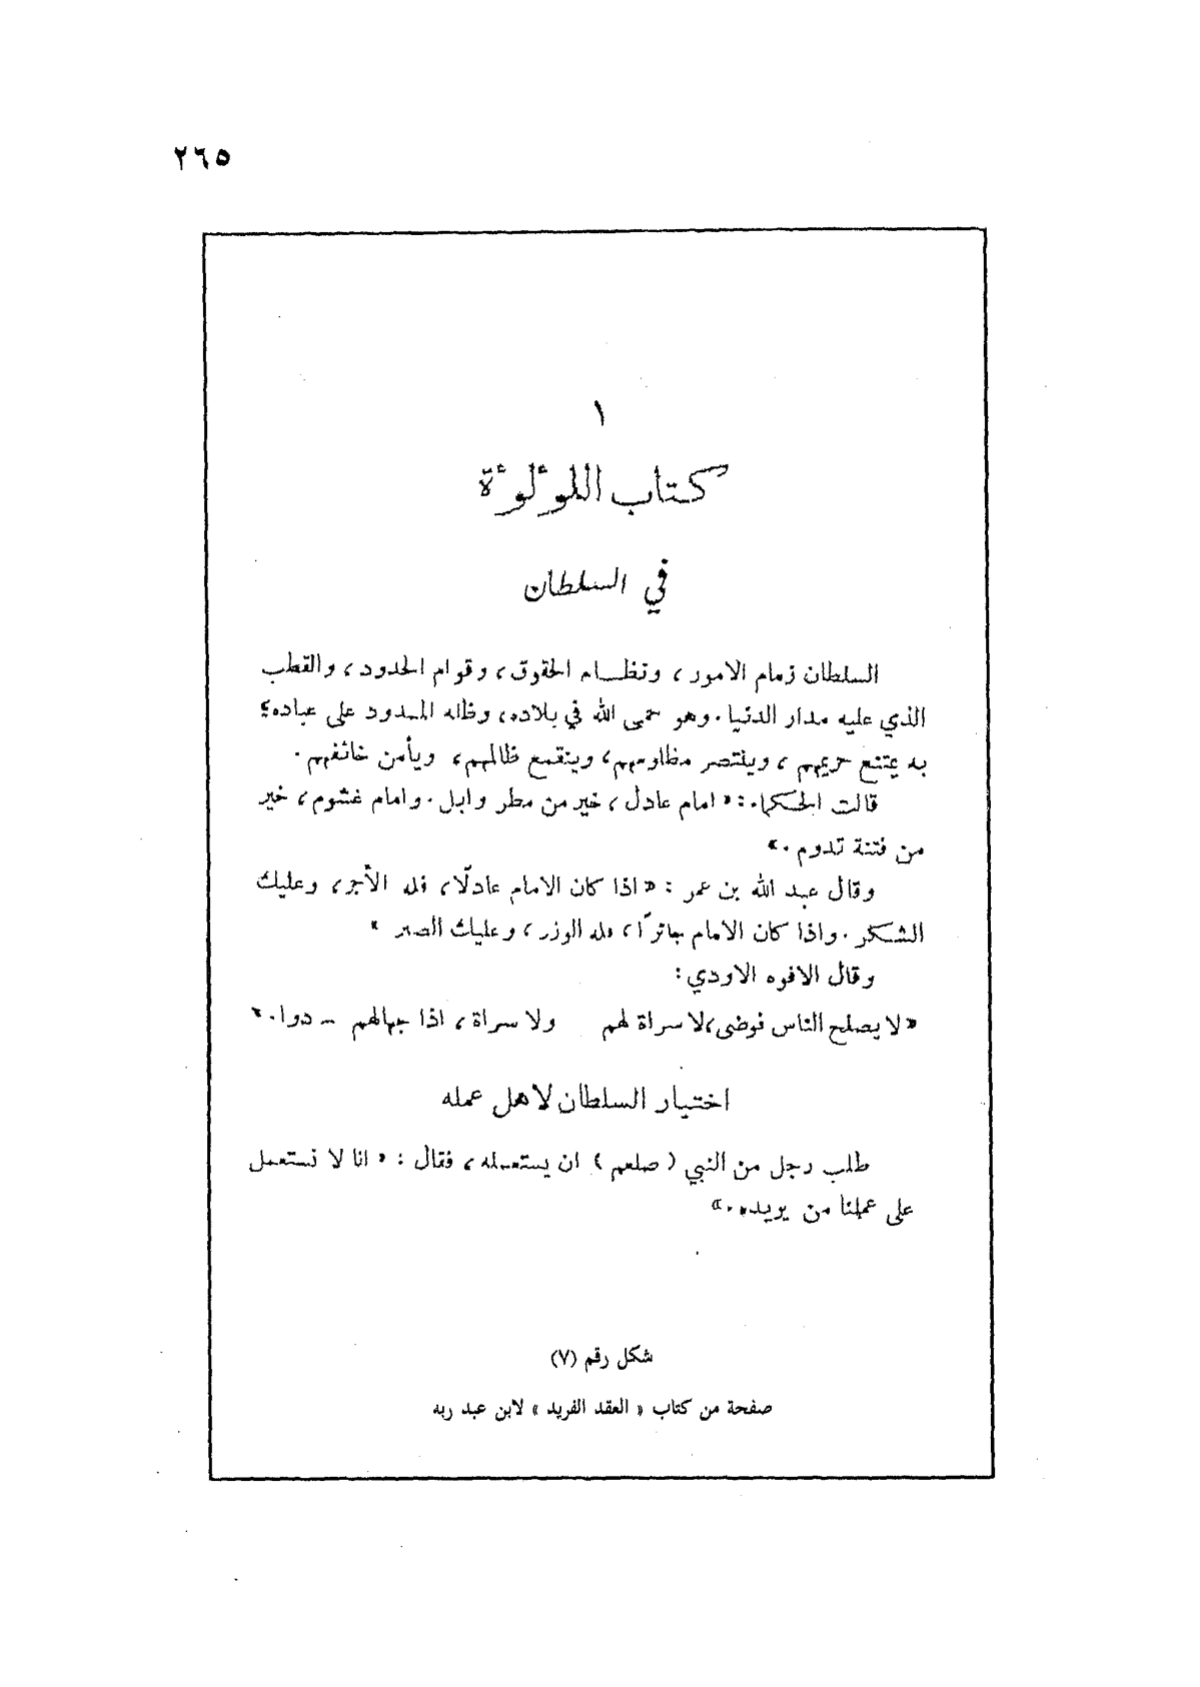 ٢٦٥
١
كتاب اللؤلؤة
في السلطان
السلطان زمام الامور، ونظام الحقوق، وقوام الحدود، والقطب
الذي عليه مدار الدنيا. وهو حمى الله في بلاده، وظله الممدود على عباده؛
به يمتنع حريمهم، وينتصر مظلومهم، وينقمع ظالمهم، ويأمن خائفهم.
قالت الحكماء: «امام عادل، خير من مطر وابل. وامام غشوم، خير
من فتنة تدوم.»
وقال عبد الله بن عمر: «اذا كان الامام عادلًا، فله الأجر، وعليك
الشكر. واذا كان الامام جائرًا، فله الوزر، وعليك الصبر»
وقال الافوه الاودي:
«لا يصلح الناس فوضى، لا سراة لهم ولا سراة، اذا جهالهم – دوا.»
اختيار السلطان لاهل عمله
طلب رجل من النبي (صلعم) ان يستعمله، فقال: «انا لا نستعمل
على عملنا من يريده.»
شكل رقم (٧)
صفحة من كتاب «العقد الفريد» لابن عبد ربه